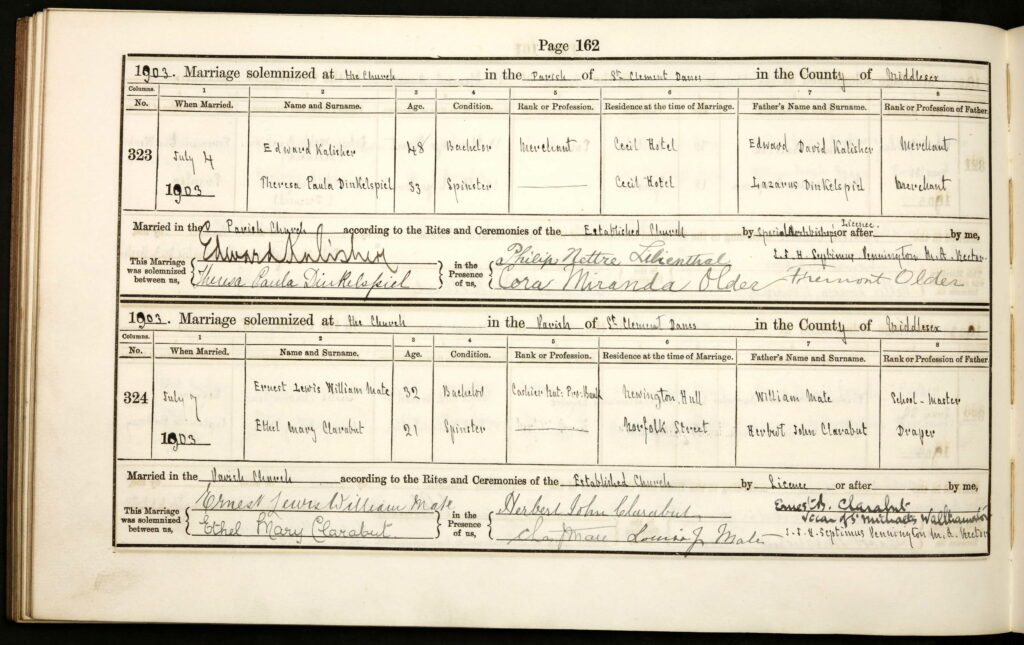 Page 162
1903. Marriage solemnized at the Church in the Parish of St Clement Danes in the County of Middlesex
Columns. 1 2 3 4 5 6 7 8
No. When Married. Name and Surname. Age. Condition. Rank or Profession. Residence at the time of Marriage. Father's Name and Surname. Rank or Profession of Father.
323 July 4 1903 Edward Kalisher 48 Bachelor Merchant Cecil Hotel Edward David Kalisher Merchant
Theresa Paula Dinkelspiel 33 Spinster Cecil Hotel Lazarus Dinkelspiel Merchant
Married in the Parish Church according to the Rites and Ceremonies of the Established Church by Special Archbishop's Licence. or after by me,
This Marriage was solemnized between us, Edward Kalisher in the Presence of us, Philip Nettre Lilienthal Septimus Pennington M.A. Rector
Theresa Paula Dinkelspiel Cora Miranda Older Fremont Older
1903. Marriage solemnized at the Church in the Parish of St Clement Danes in the County of Middlesex
Columns. 1 2 3 4 5 6 7 8
No. When Married. Name and Surname. Age. Condition. Rank or Profession. Residence at the time of Marriage. Father's Name and Surname. Rank or Profession of Father.
324 July 7 1903 Ernest Lewis William Mate 32 Bachelor Cashier Nat: Pro: Bank Newington, Hull William Mate School-Master
Ethel Mary Clarabut 21 Spinster Norfolk Street Herbert John Clarabut Draper
Married in the Parish Church according to the Rites and Ceremonies of the Established Church by Licence or after by me,
This Marriage was solemnized between us, Ernest Lewis William Mate in the Presence of us, Herbert John Clarabut Ernest B. Clarabut
Vicar of St Michaels Walthamstow
Ethel Mary Clarabut Louisa J Mate Septimus Pennington M.A. Rector